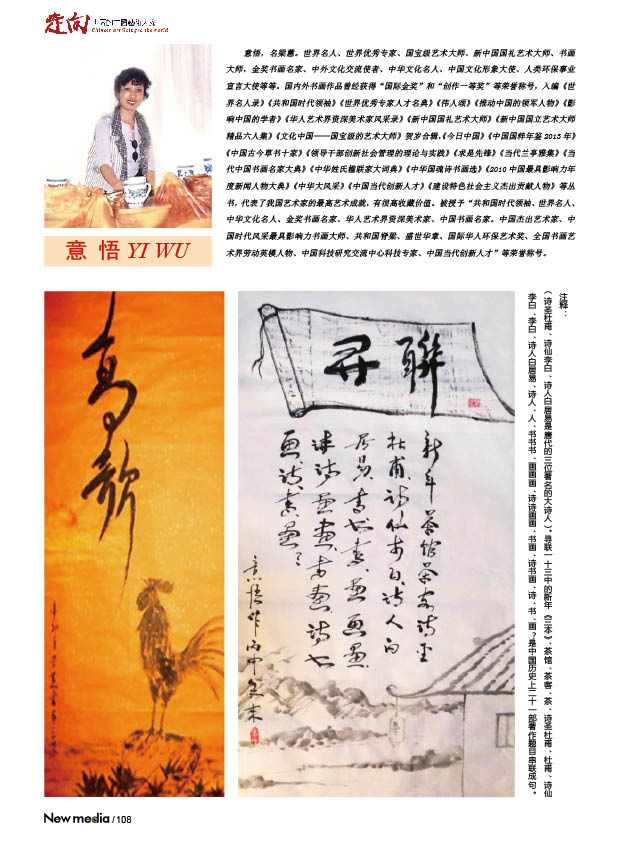 走向
Chinese art Going to the world
意悟，名梁惠。世界名人、世界优秀专家、国宝级艺术大师、新中国国礼艺术大师、书画
大师，金奖书画名家、中外文化交流使者、中华文化名人、中国文化形象大使、人类环保事业
宣言大使等等。国内外书画作品曾经获得“国际金奖”和“创作一等奖”等荣誉称号，入编《世
界名人录》《共和国时代领袖》《世界优秀专家人才名典》《伟人颂》《推动中国的领军人物》《影
响中国的学者》《华人艺术界资深美术家风采录》《新中国国礼艺术大师》《新中国国立艺术大师
精品六人集》《文化中国——国宝级的艺术大师》贺岁合辑，《今日中国》《中国国粹年鉴2015年》
《中国古今草书十家》《领导干部创新社会管理的理论与实践》《求是先锋》《当代兰亭雅集》《当
代中国书画名家大典》《中华姓氏楹联家大词典》《中华国魂诗书画选》《2010中国最具影响力年
度新闻人物大典》《中华大风采》《中国当代创新人才》《建设特色社会主义杰出贡献人物》等丛
书，代表了我国艺术家的最高艺术成就，有很高收藏价值。被授予“共和国时代领袖、世界名人、
中华文化名人、金奖书画名家、华人艺术界资深美术家、中国书画名家。中国杰出艺术家、中
国时代风采最具影响力书画大师、共和国脊梁、盛世华章、国际华人环保艺术奖、全国书画艺
术界劳动英模人物、中国科技研究交流中心科技专家、中国当代创新人才”等荣誉称号。
意 悟 YI WU
高歌
聯尋
新年茶馆茶客诗圣
杜甫诗仙李白诗人白
居易
意悟作丙申年末
注释：
（诗圣杜甫、诗仙李白、诗人白居易是唐代的三位著名的大诗人）。寻联一十三中的新年《三本》、茶馆、茶客、茶、诗圣杜甫、杜甫、诗仙
李白、李白、诗人白居易、诗人、人、书书书、画画画、诗诗画画、书画、诗书画、诗、书、画？是中国历史上二十一部著作题目串联成句。
New media / 108